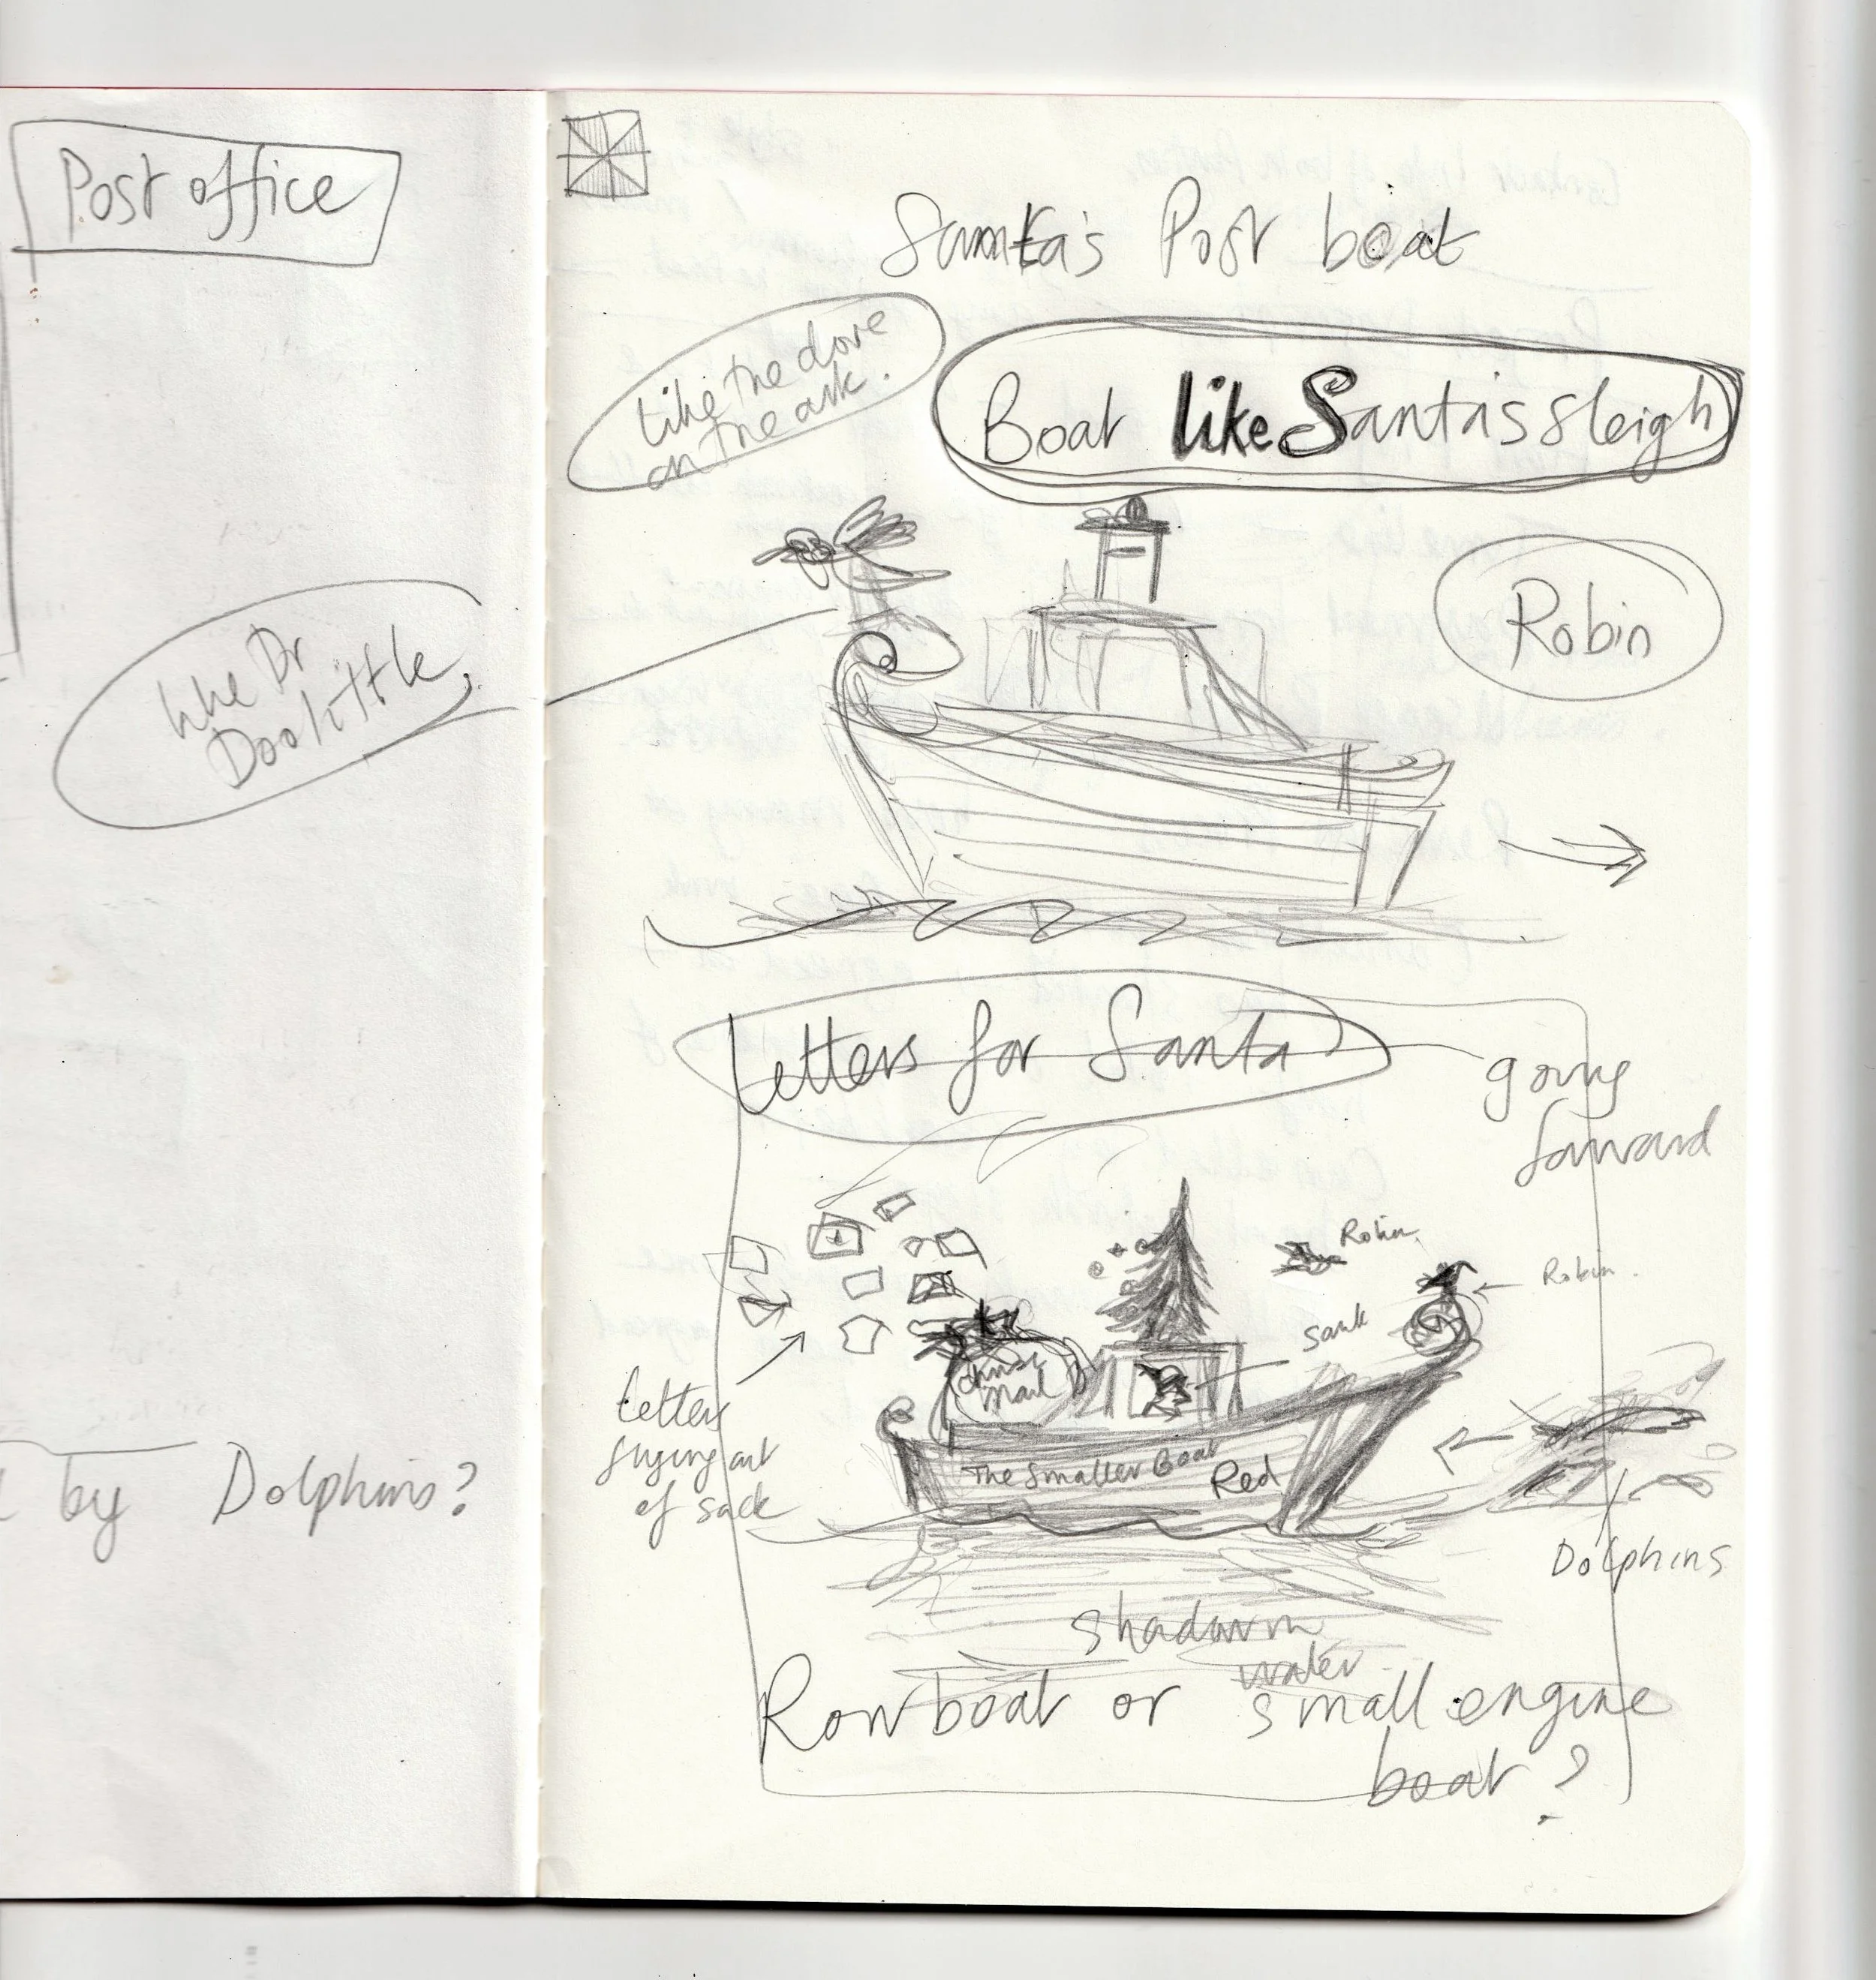 Post office
like Dr
Doolittle
by Dolphins?
Santa's Post boat
Like the dove
on the ark.
Boat like Santa's sleigh
Robin
Letters for Santa
going
forward
Robin
Robin.
mail
Letters
flying out
of sack
The Smaller Boat
Red
Dolphins
shadow in
water
Row boat or small engine
boat?